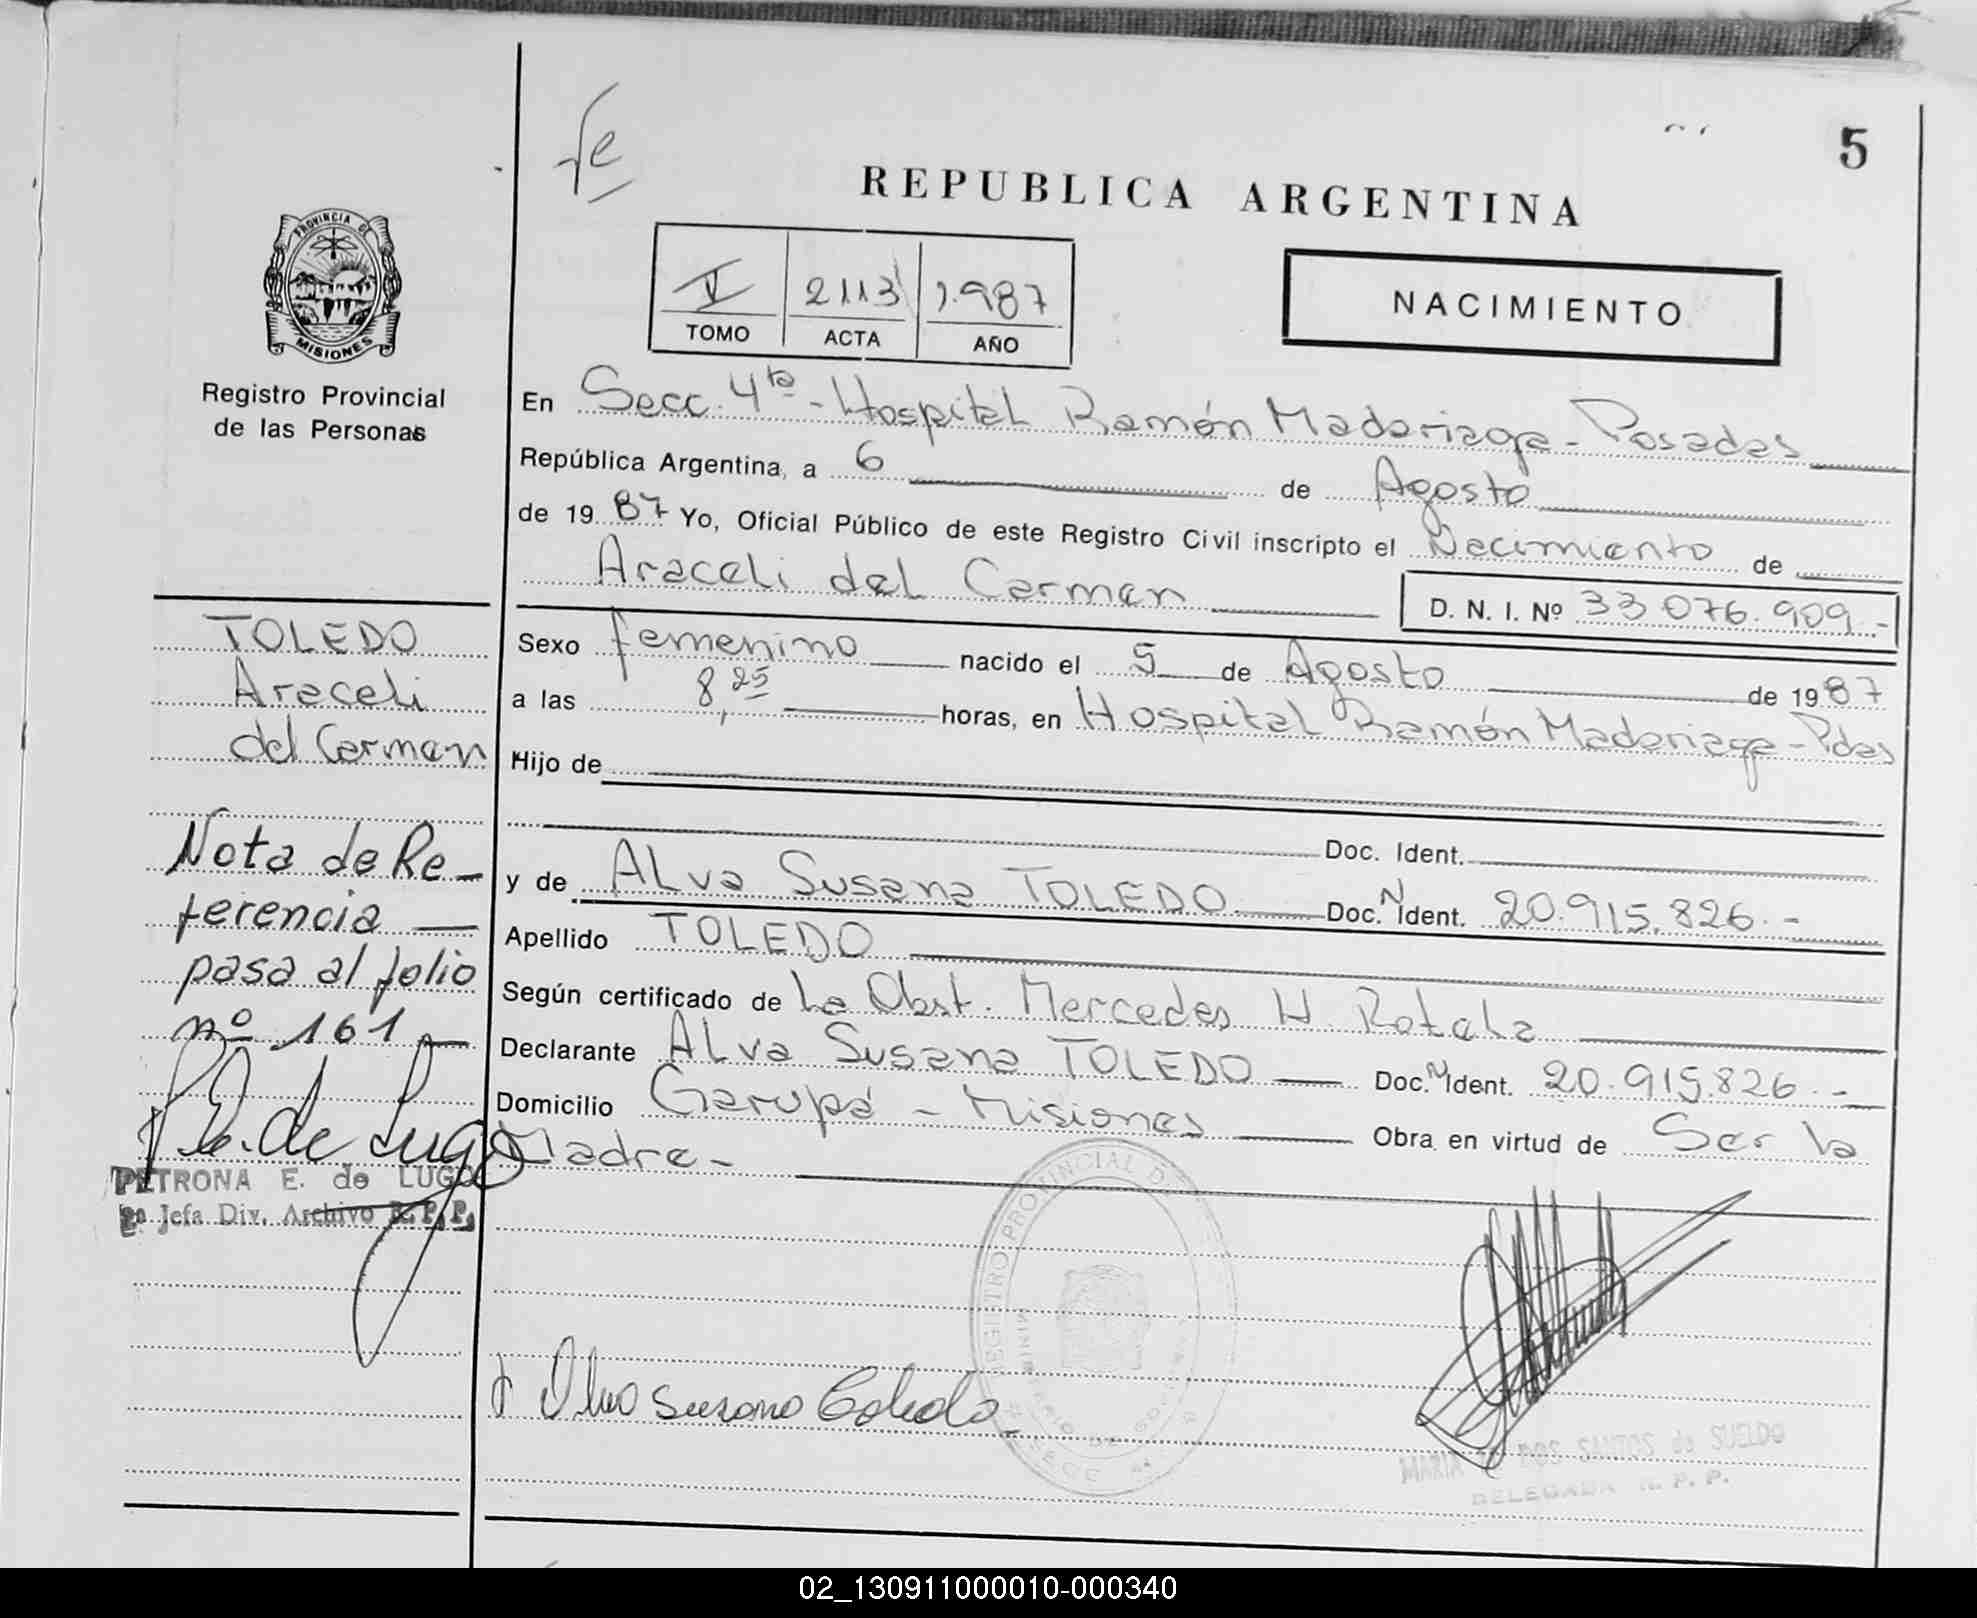 5
REPUBLICA ARGENTINA
PROVINCIA DE
MISIONES
Registro Provincial
de las Personas
V 2113 1.987
TOMO ACTA AÑO
NACIMIENTO
En Secc. 4ta - Hospital Ramón Madariaga - Posadas
República Argentina, a 6 de Agosto
de 19 87 Yo, Oficial Público de este Registro Civil inscripto el Nacimiento de
Araceli del Carmen
D. N. I. Nº 33 076.909.-
Sexo femenino nacido el 5 de Agosto de 19 87
a las 8,25 horas, en Hospital Ramón Madariaga - Pdas
Hijo de
Doc. Ident.
y de ALva Susana TOLEDO Doc. N Ident. 20.915.826.-
Apellido TOLEDO
Según certificado de La Obst. Mercedes H. Rotela
Declarante ALva Susana TOLEDO Doc. N Ident. 20.915.826.-
Domicilio Garupá - Misiones Obra en virtud de Ser la
Madre-
TOLEDO
Araceli
del Carmen
Nota de Re-
ferencia
pasa al folio
nº 161
P. E. de Lugo
PETRONA E. de LUGO
2ª Jefa Div. Archivo R. P. P.
REGISTRO PROVINCIAL DE
SECC 4ª
Alva Susana Toledo
MARIA DOS SANTOS de SUELDO
DELEGADA R. P. P.
02_130911000010-000340